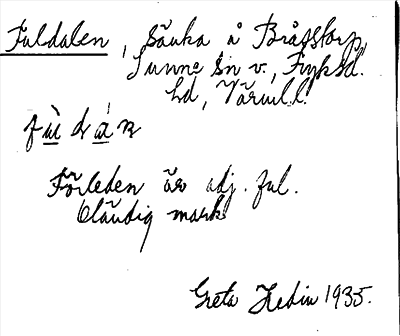 Fuldalen, Sänka å Bråsstorp,
Sunne Sn v., Fryksd.
hd, Värml.l.
fù dá n
Förleden är adj. ful.
Eländig mark
Greta Hedin 1935.